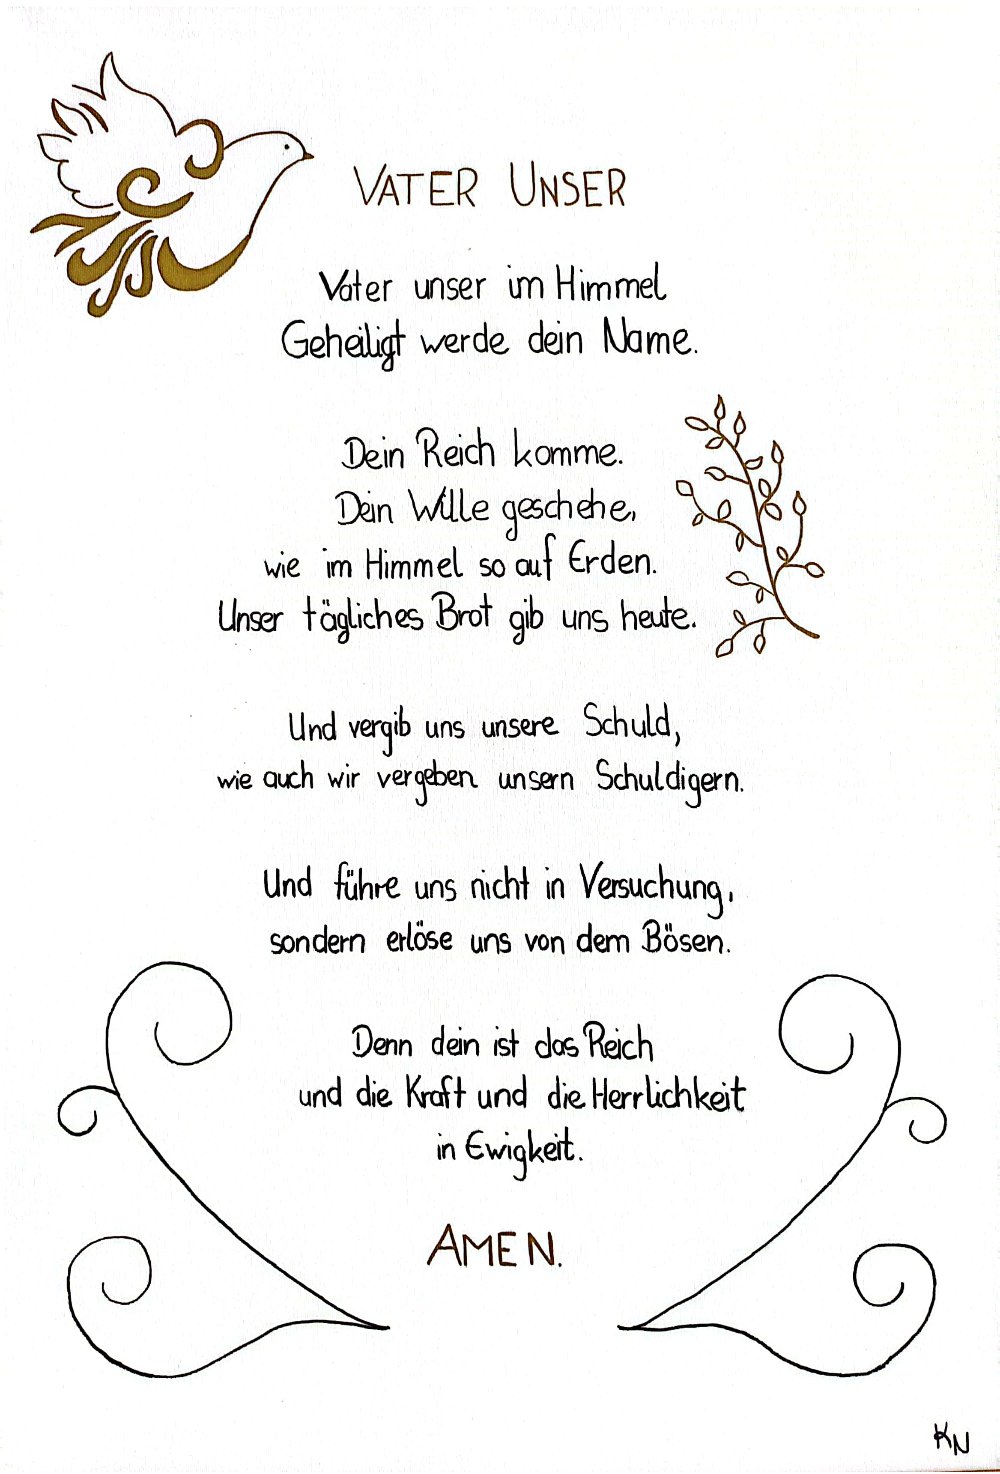 VATER UNSER
Vater unser im Himmel
Geheiligt werde dein Name.
Dein Reich komme.
Dein Wille geschehe,
wie im Himmel so auf Erden.
Unser tägliches Brot gib uns heute.
Und vergib uns unsere Schuld,
wie auch wir vergeben unsern Schuldigern.
Und führe uns nicht in Versuchung,
sondern erlöse uns von dem Bösen.
Denn dein ist das Reich
und die Kraft und die Herrlichkeit
in Ewigkeit.
AMEN.
KN